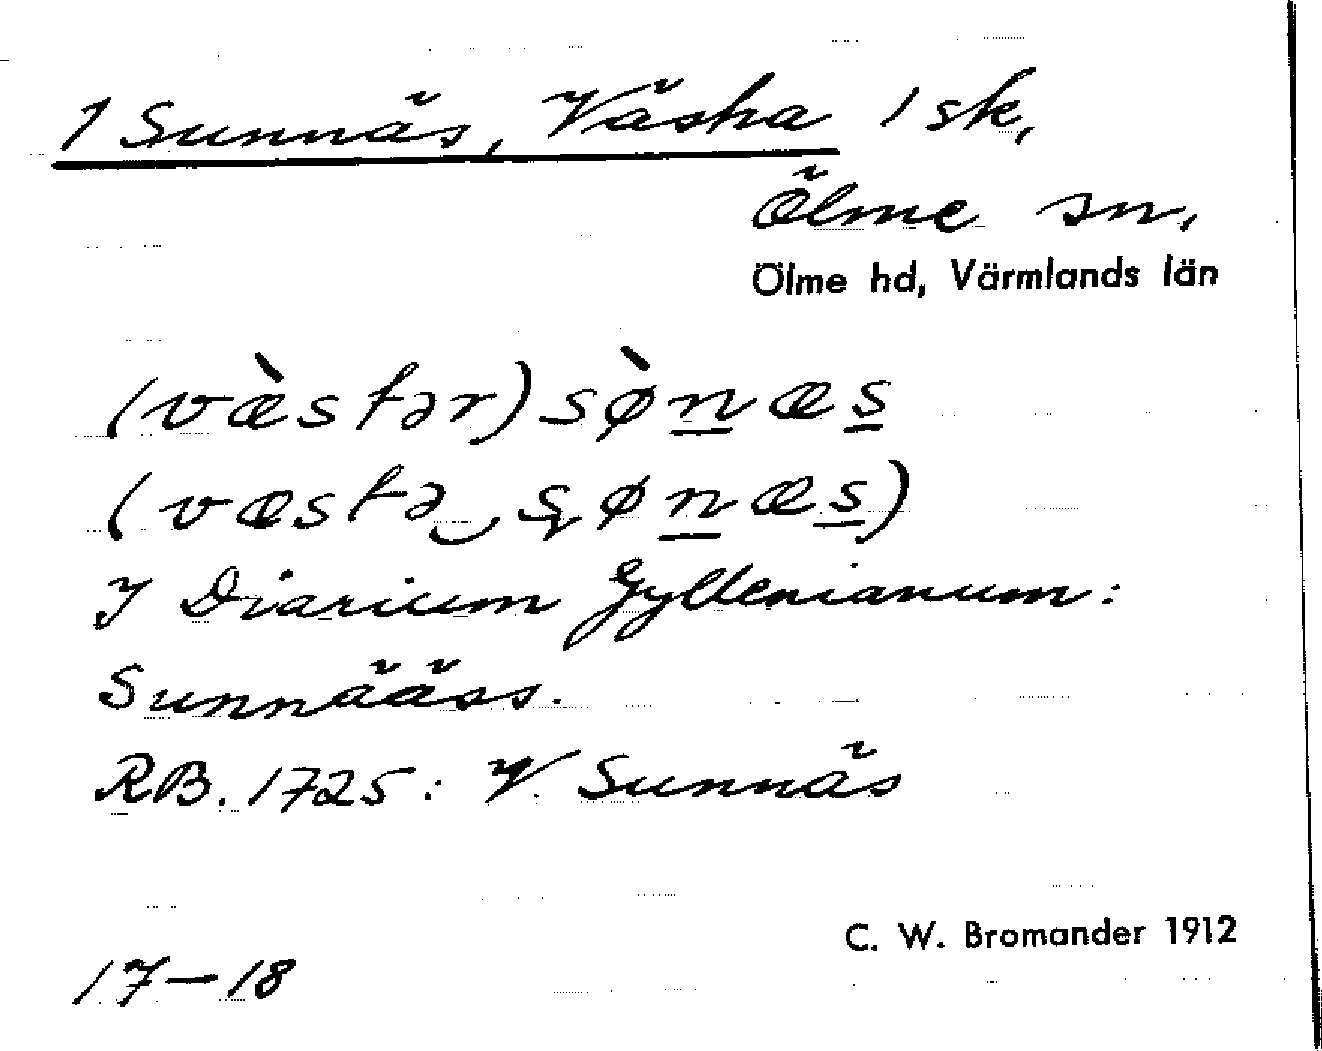 1 Sunnäs, Västra 1 sk,
Ölme sn,
Ölme hd, Värmlands län
(væ̀stər)sø̀n̲æs̲
(væstə‿ʂøn̲æs̲)
I Diarium Gyllenianum:
Sunnääss.
RB. 1725: V. Sunnäs
C. W. Bromander 1912
17–18